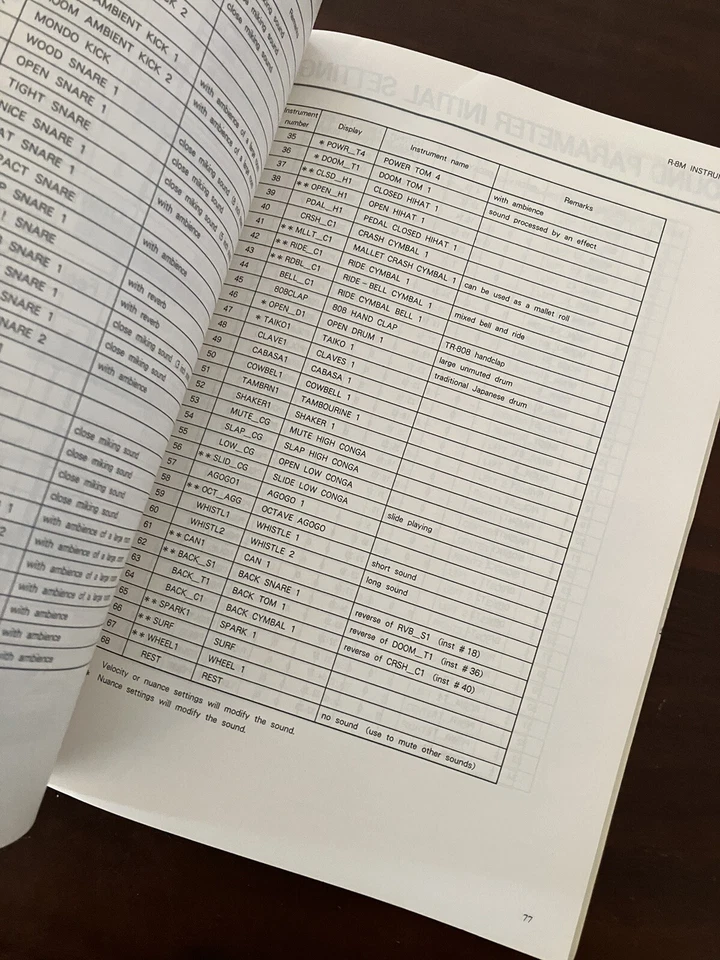 Remarks
close miking sound
close miking sound
KICK 2
AMBIENT KICK 1
ROOM AMBIENT KICK 2
MONDO KICK
WOOD SNARE 1
OPEN SNARE 1
TIGHT SNARE
NICE SNARE 1
SNARE 1
SNARE
SNARE 1
SNARE
SNARE 1
SNARE 1
SNARE 1
SNARE 2
1
2
with ambience of a large
with ambience of a
close miking sound
close miking sound
close miking sound
with ambience
with ambience
with reverb
with reverb
close miking sound
close miking sound
with ambience
close miking sound
close miking sound
close miking sound
close miking sound
with ambience of a large
with ambience of a large
with ambience of a large
with ambience of a large
with ambience
with ambience
with ambience
R-8M INSTRU
Instrument number Display Instrument name Remarks
35 * POWR_T4 POWER TOM 4 with ambience
36 * DOOM_T1 DOOM TOM 1 sound processed by an effect
37 ** CLSD_H1 CLOSED HIHAT 1
38 ** OPEN_H1 OPEN HIHAT 1
39 PDAL_H1 PEDAL CLOSED HIHAT 1
40 CRSH_C1 CRASH CYMBAL 1
41 ** MLLT_C1 MALLET CRASH CYMBAL 1 can be used as a mallet roll
42 ** RIDE_C1 RIDE CYMBAL 1
43 ** RDBL_C1 RIDE-BELL CYMBAL 1 mixed bell and ride
44 BELL_C1 RIDE CYMBAL BELL 1
45 808CLAP 808 HAND CLAP TR-808 handclap
46 * OPEN_D1 OPEN DRUM 1 large unmuted drum
47 * TAIKO1 TAIKO 1 traditional Japanese drum
48 CLAVE1 CLAVES 1
49 CABASA1 CABASA 1
50 COWBEL1 COWBELL 1
51 TAMBRN1 TAMBOURINE 1
52 SHAKER1 SHAKER 1
53 MUTE_CG MUTE HIGH CONGA
54 SLAP_CG SLAP HIGH CONGA
55 LOW_CG OPEN LOW CONGA
56 ** SLID_CG SLIDE LOW CONGA slide playing
57 AGOGO1 AGOGO 1
58 ** OCT_AGG OCTAVE AGOGO
59 WHISTL1 WHISTLE 1 short sound
60 WHISTL2 WHISTLE 2 long sound
61 ** CAN1 CAN 1
62 ** BACK_S1 BACK SNARE 1 reverse of RVB_S1 (inst #18)
63 BACK_T1 BACK TOM 1 reverse of DOOM_T1 (inst #36)
64 BACK_C1 BACK CYMBAL 1 reverse of CRSH_C1 (inst #40)
65 ** SPARK1 SPARK 1
66 ** SURF SURF
67 ** WHEEL1 WHEEL 1
68 REST REST no sound (use to mute other sounds)
Velocity or nuance settings will modify the sound.
* Nuance settings will modify the sound.
77